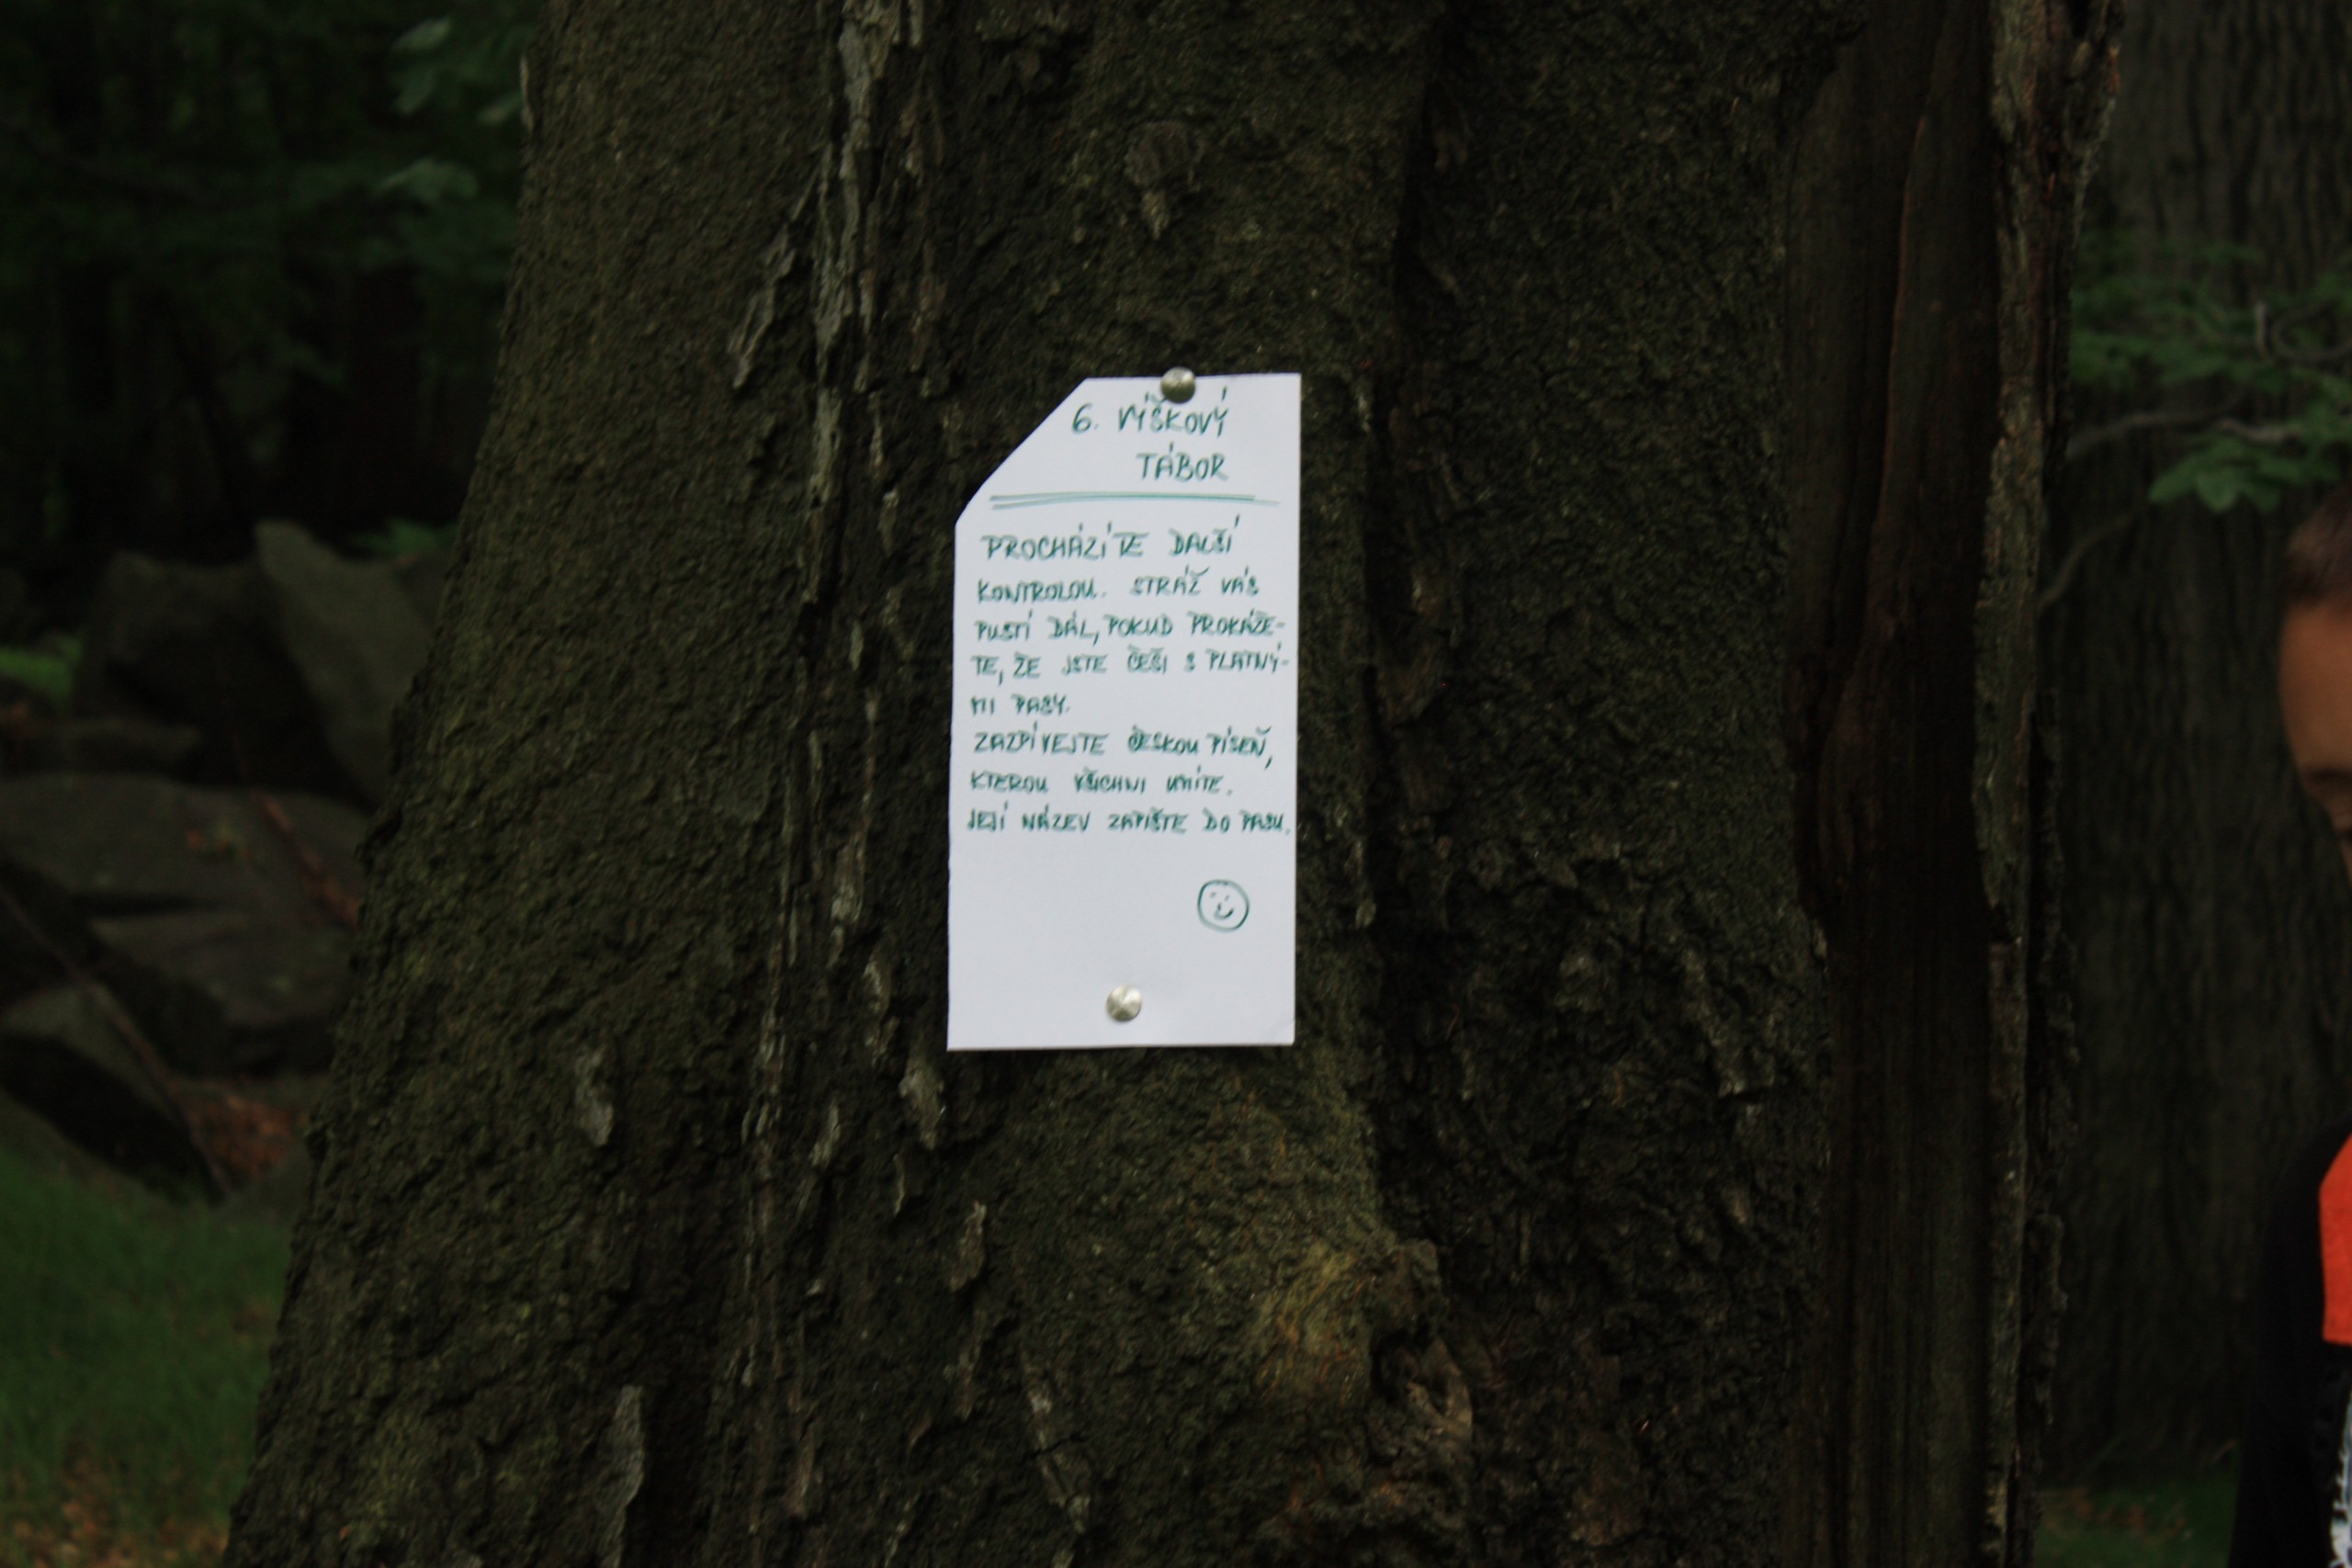 6. VÝŠKOVÝ
TÁBOR
PROCHÁZÍTE DALŠÍ
KONTROLOU. STRÁŽ VÁS
PUSTÍ DÁL, POKUD PROKÁŽE-
TE, ŽE JSTE ČEŠI S PLATNÝ-
MI PASY.
ZAZPÍVEJTE ČESKOU PÍSEŇ,
KTEROU VŠICHNI UMÍTE.
JEJÍ NÁZEV ZAPIŠTE DO PASU.